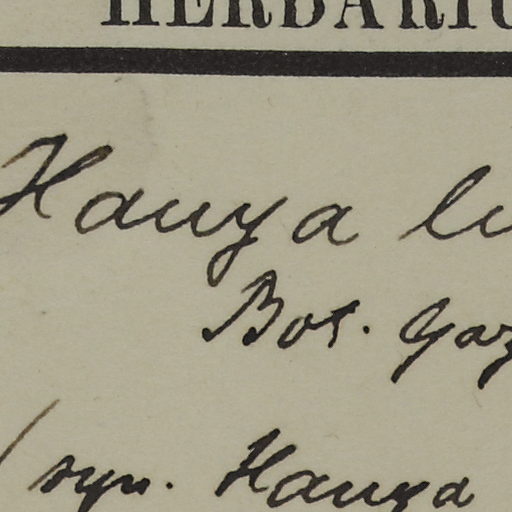 HERBARIU
Hauya lu
Bot. Gaz
(syn. Hauya